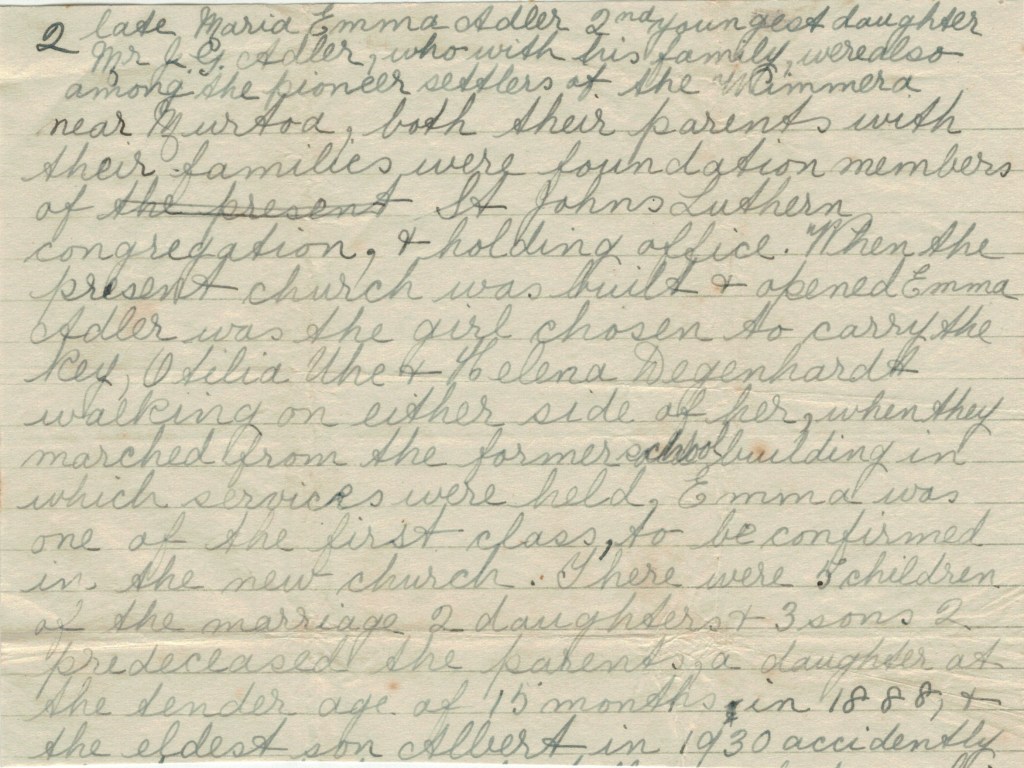 2 late Maria Emma Adler 2nd youngest daughter
Mr J. G. Adler, who with his family, were also
among the pioneer settlers of the Wimmera
near Murtoa, both their parents with
their families were foundation members
of the present St Johns Luthern
congregation, & holding office. When the
present church was built & opened Emma
Adler was the girl chosen to carry the
key, Otilia Uhe & Helena Degenhardt
walking on either side of her, when they
marched from the former school building in
which services were held, Emma was
one of the first class, to be confirmed
in the new church. There were 5 children
of the marriage 2 daughters & 3 sons 2
predeceased the parents, a daughter at
the tender age of 15 months, in 1888, &
the eldest son Albert in 1930 accidently